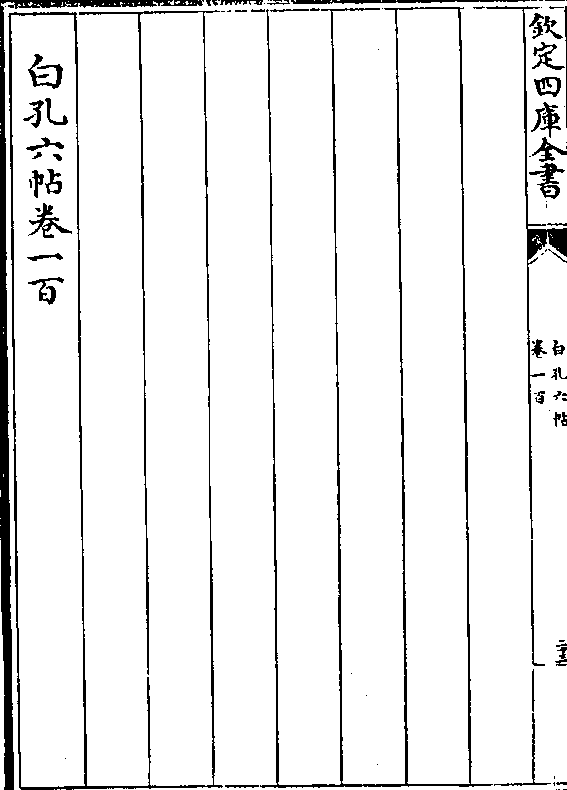 欽定四庫全書
白孔六帖
卷一百
白孔六帖卷一百